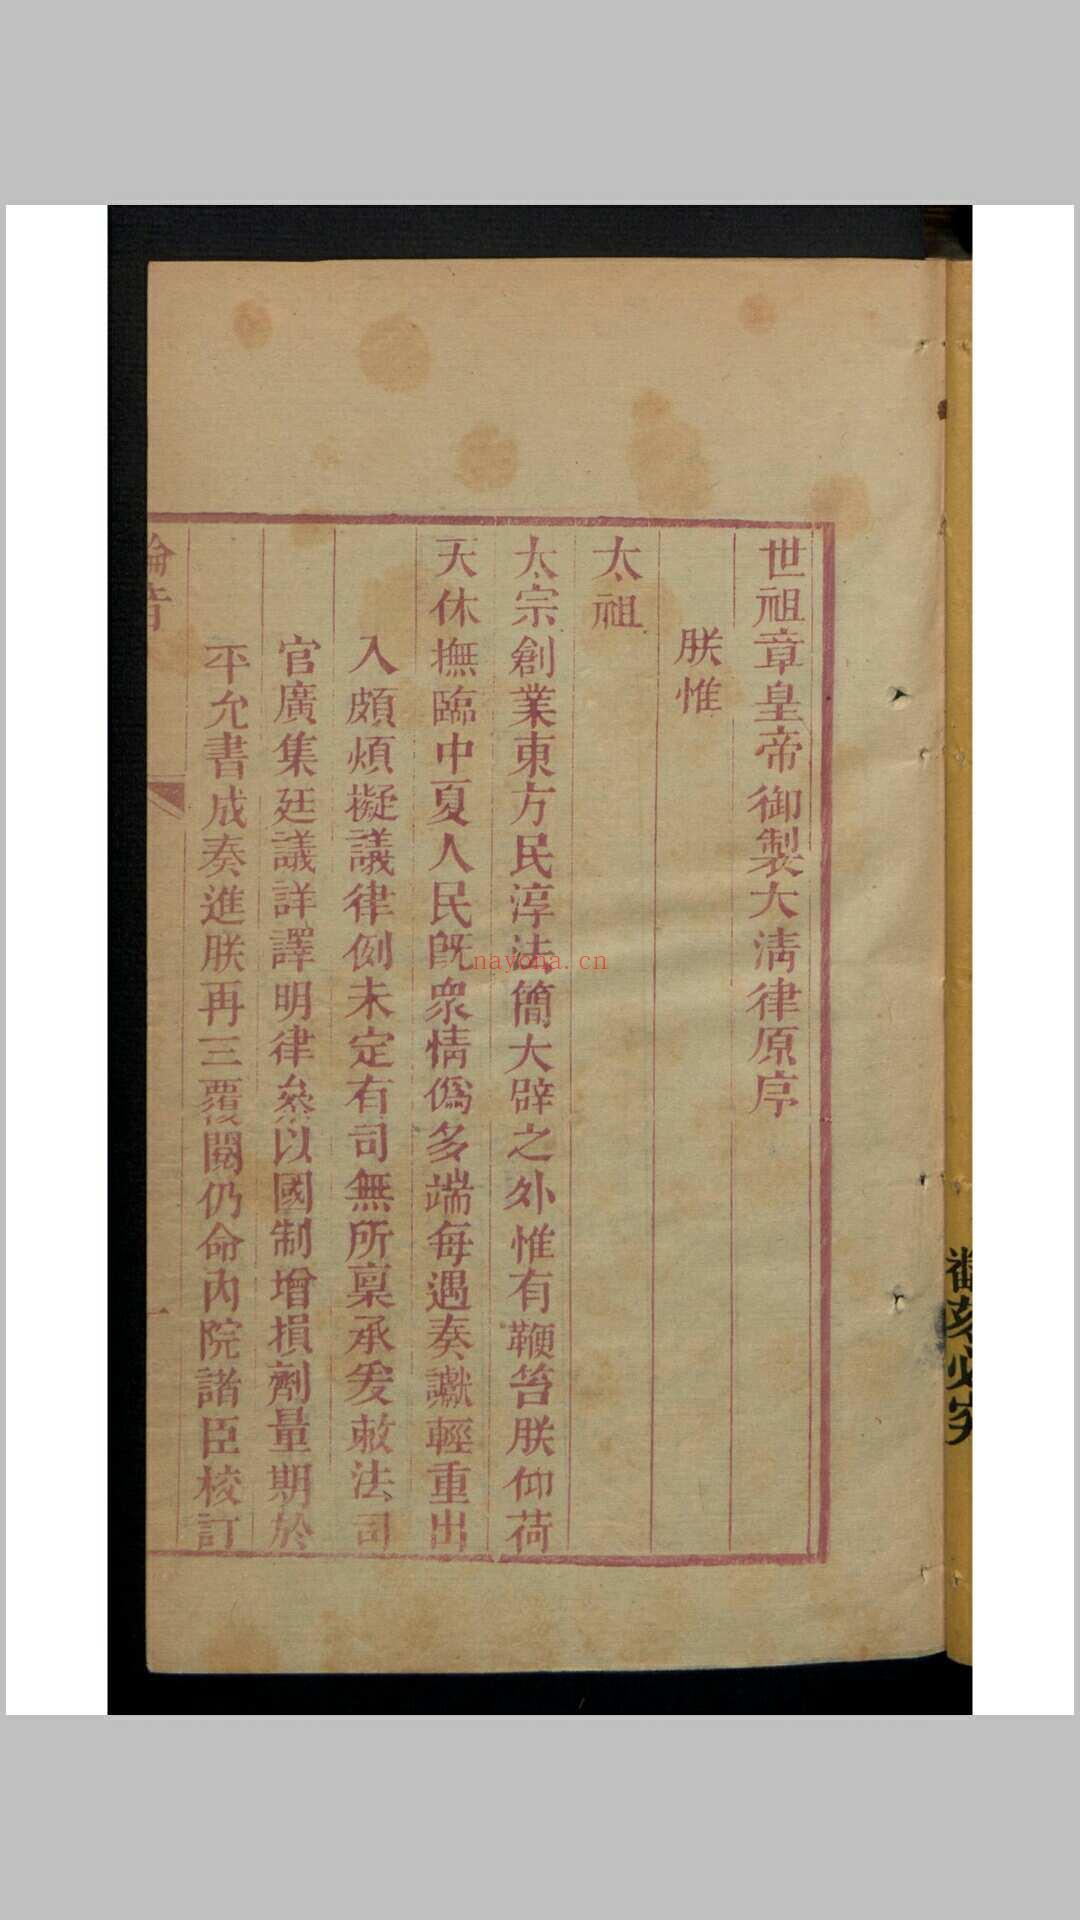 世祖章皇帝御製大淸律原序
朕惟
太祖
太宗創業東方民淳法簡大辟之外惟有鞭笞朕仰荷
天休撫臨中夏人民旣衆情僞多端每遇奏讞輕重出
入頗煩擬議律例未定有司無所稟承爰敕法司
官廣集廷議詳譯明律叅以國制增損劑量期於
平允書成奏進朕再三覆閱仍命內院諸臣校訂
諭旨
一
刻必究
nayona.cn